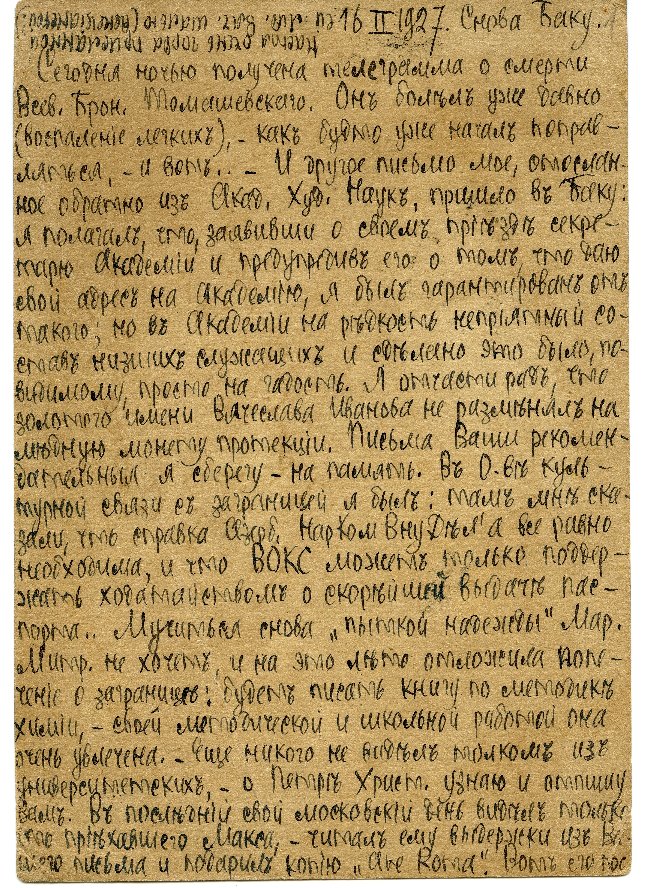 16 II 1927. Снова Баку.
Сегодня ночью получена телеграмма о смерти
Всев. Брон. Томашевскаго. Онъ болѣлъ уже давно
(воспаленіе легкихъ), – какъ будто уже началъ поправ-
ляться, – и вотъ.. – И другое письмо мое, отослан-
ное обратно изъ Акад. Худ. Наукъ, пришло въ Баку:
я полагалъ, что, заявивши о своемъ пріѣздѣ секре-
тарю Академіи и предупредивъ его о томъ, что даю
свой адресъ на Академію, я былъ гарантированъ отъ
такого; но въ Академіи на рѣдкость непріятный со-
ставъ низшихъ служащихъ и сдѣлано это было, по-
видимому, просто на гадость. Я отчасти радъ, что
золотого имени Вячеслава Иванова не размѣнялъ на
мѣдную монету протекціи. Письма Ваши рекомен-
дательныя я сберегу – на память. Въ О-вѣ куль-
турной связи съ заграницей я былъ: тамъ мнѣ ска-
зали, что справка Азерб. НарКомВнуДѣл'а все равно
необходима, и что ВОКС можетъ только поддер-
жать ходатайствомъ о скорѣйшей выдачѣ пас-
порта.. Мучиться снова „пыткой надежды" Мар.
Митр. не хочетъ, и на это лѣто отложила попе-
ченіе о заграницѣ: будетъ писать книгу по методикѣ
химіи, – своей методической и школьной работой она
очень увлечена. – Еще никого не видѣлъ толкомъ изъ
университетскихъ, – о Петрѣ Христ. узнаю и отпишу
Вамъ. Въ послѣдній свой московскій день видѣлъ только
что пріѣхавшего Макса, – читалъ ему выдержки изъ Ва-
шего письма и подарилъ копію „Ave Roma". Вотъ его пос